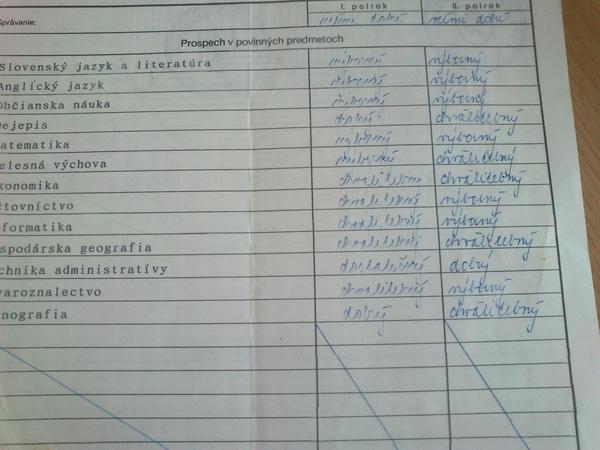 I. polrok II. polrok
Správanie: veľmi dobré veľmi dobré
Prospech v povinných predmetoch
Slovenský jazyk a literatúra výborný výborný
Anglický jazyk výborný výborný
Občianska náuka výborný výborný
ejepis dobrý chválitebný
atematika výborný výborný
elesná výchova výborný chválitebný
konomika chválitebný chválitebný
čtovníctvo chválitebný výborný
formatika chválitebný výborný
spodárska geografia chválitebný chválitebný
chnika administratívy dostatočný dobrý
varoznalectvo chválitebný výborný
nografia dobrý chválitebný